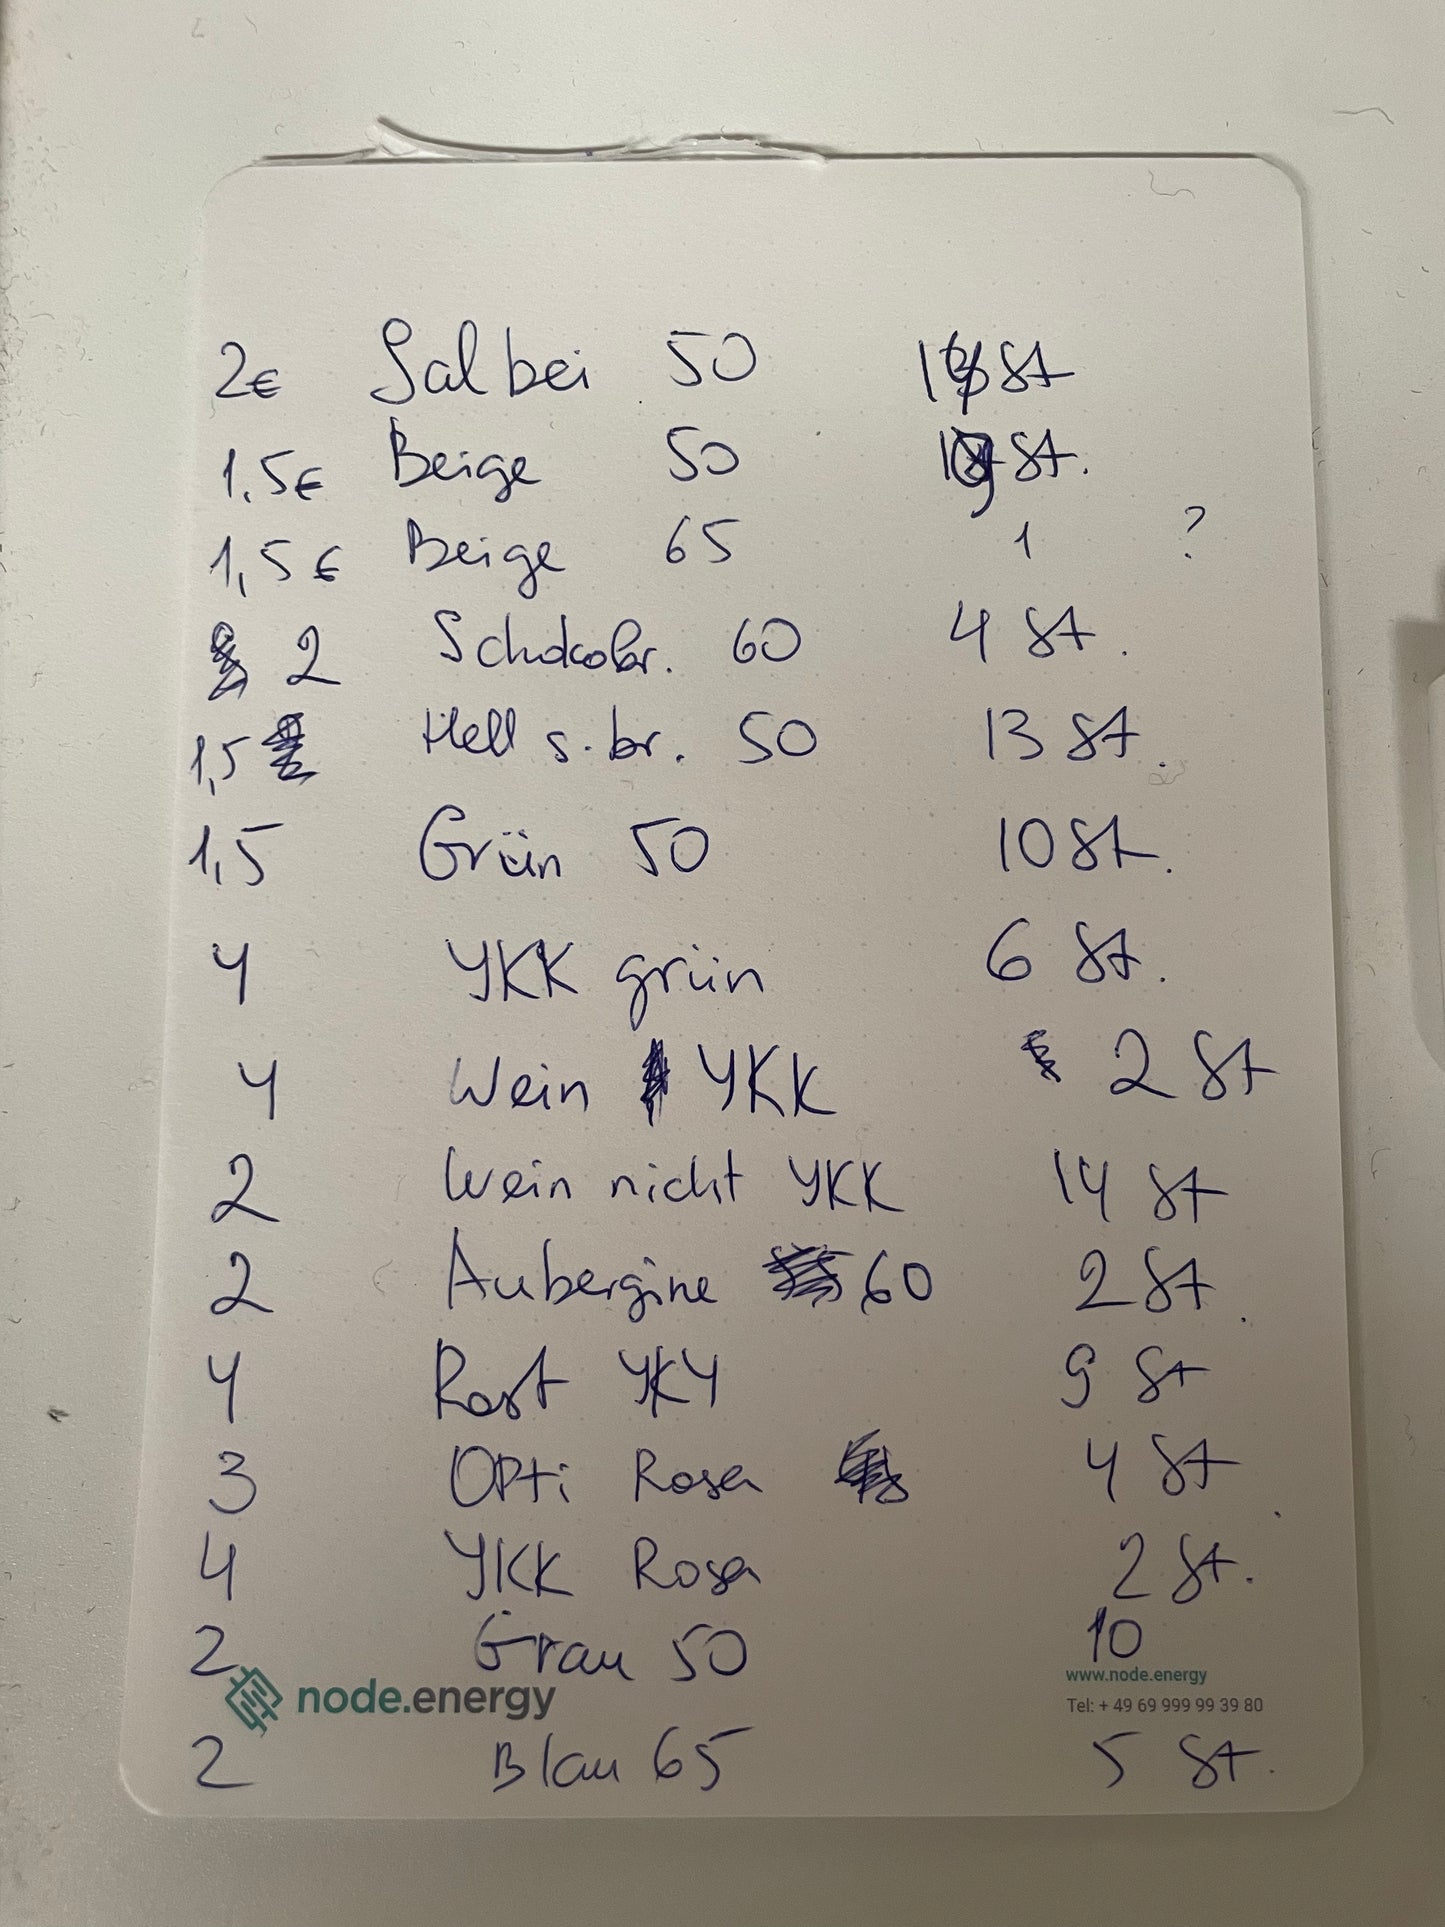 2€ Salbei 50 St
1,5€ Beige 50 St.
1,5€ Beige 65 1 ?
2 Schokobr. 60 4 St.
1,5 Hell s. br. 50 13 St.
1,5 Grün 50 10 St.
4 YKK grün 6 St.
4 Wein YKK 2 St
2 Wein nicht YKK 14 St
2 Aubergine 60 2 St.
4 Rost YKY 9 St
3 Opti Rosa 4 St
4 YKK Rosa 2 St.
2 Grau 50 10
node.energy
www.node.energy
Tel: + 49 69 999 99 39 80
2 Blau 65 5 St.